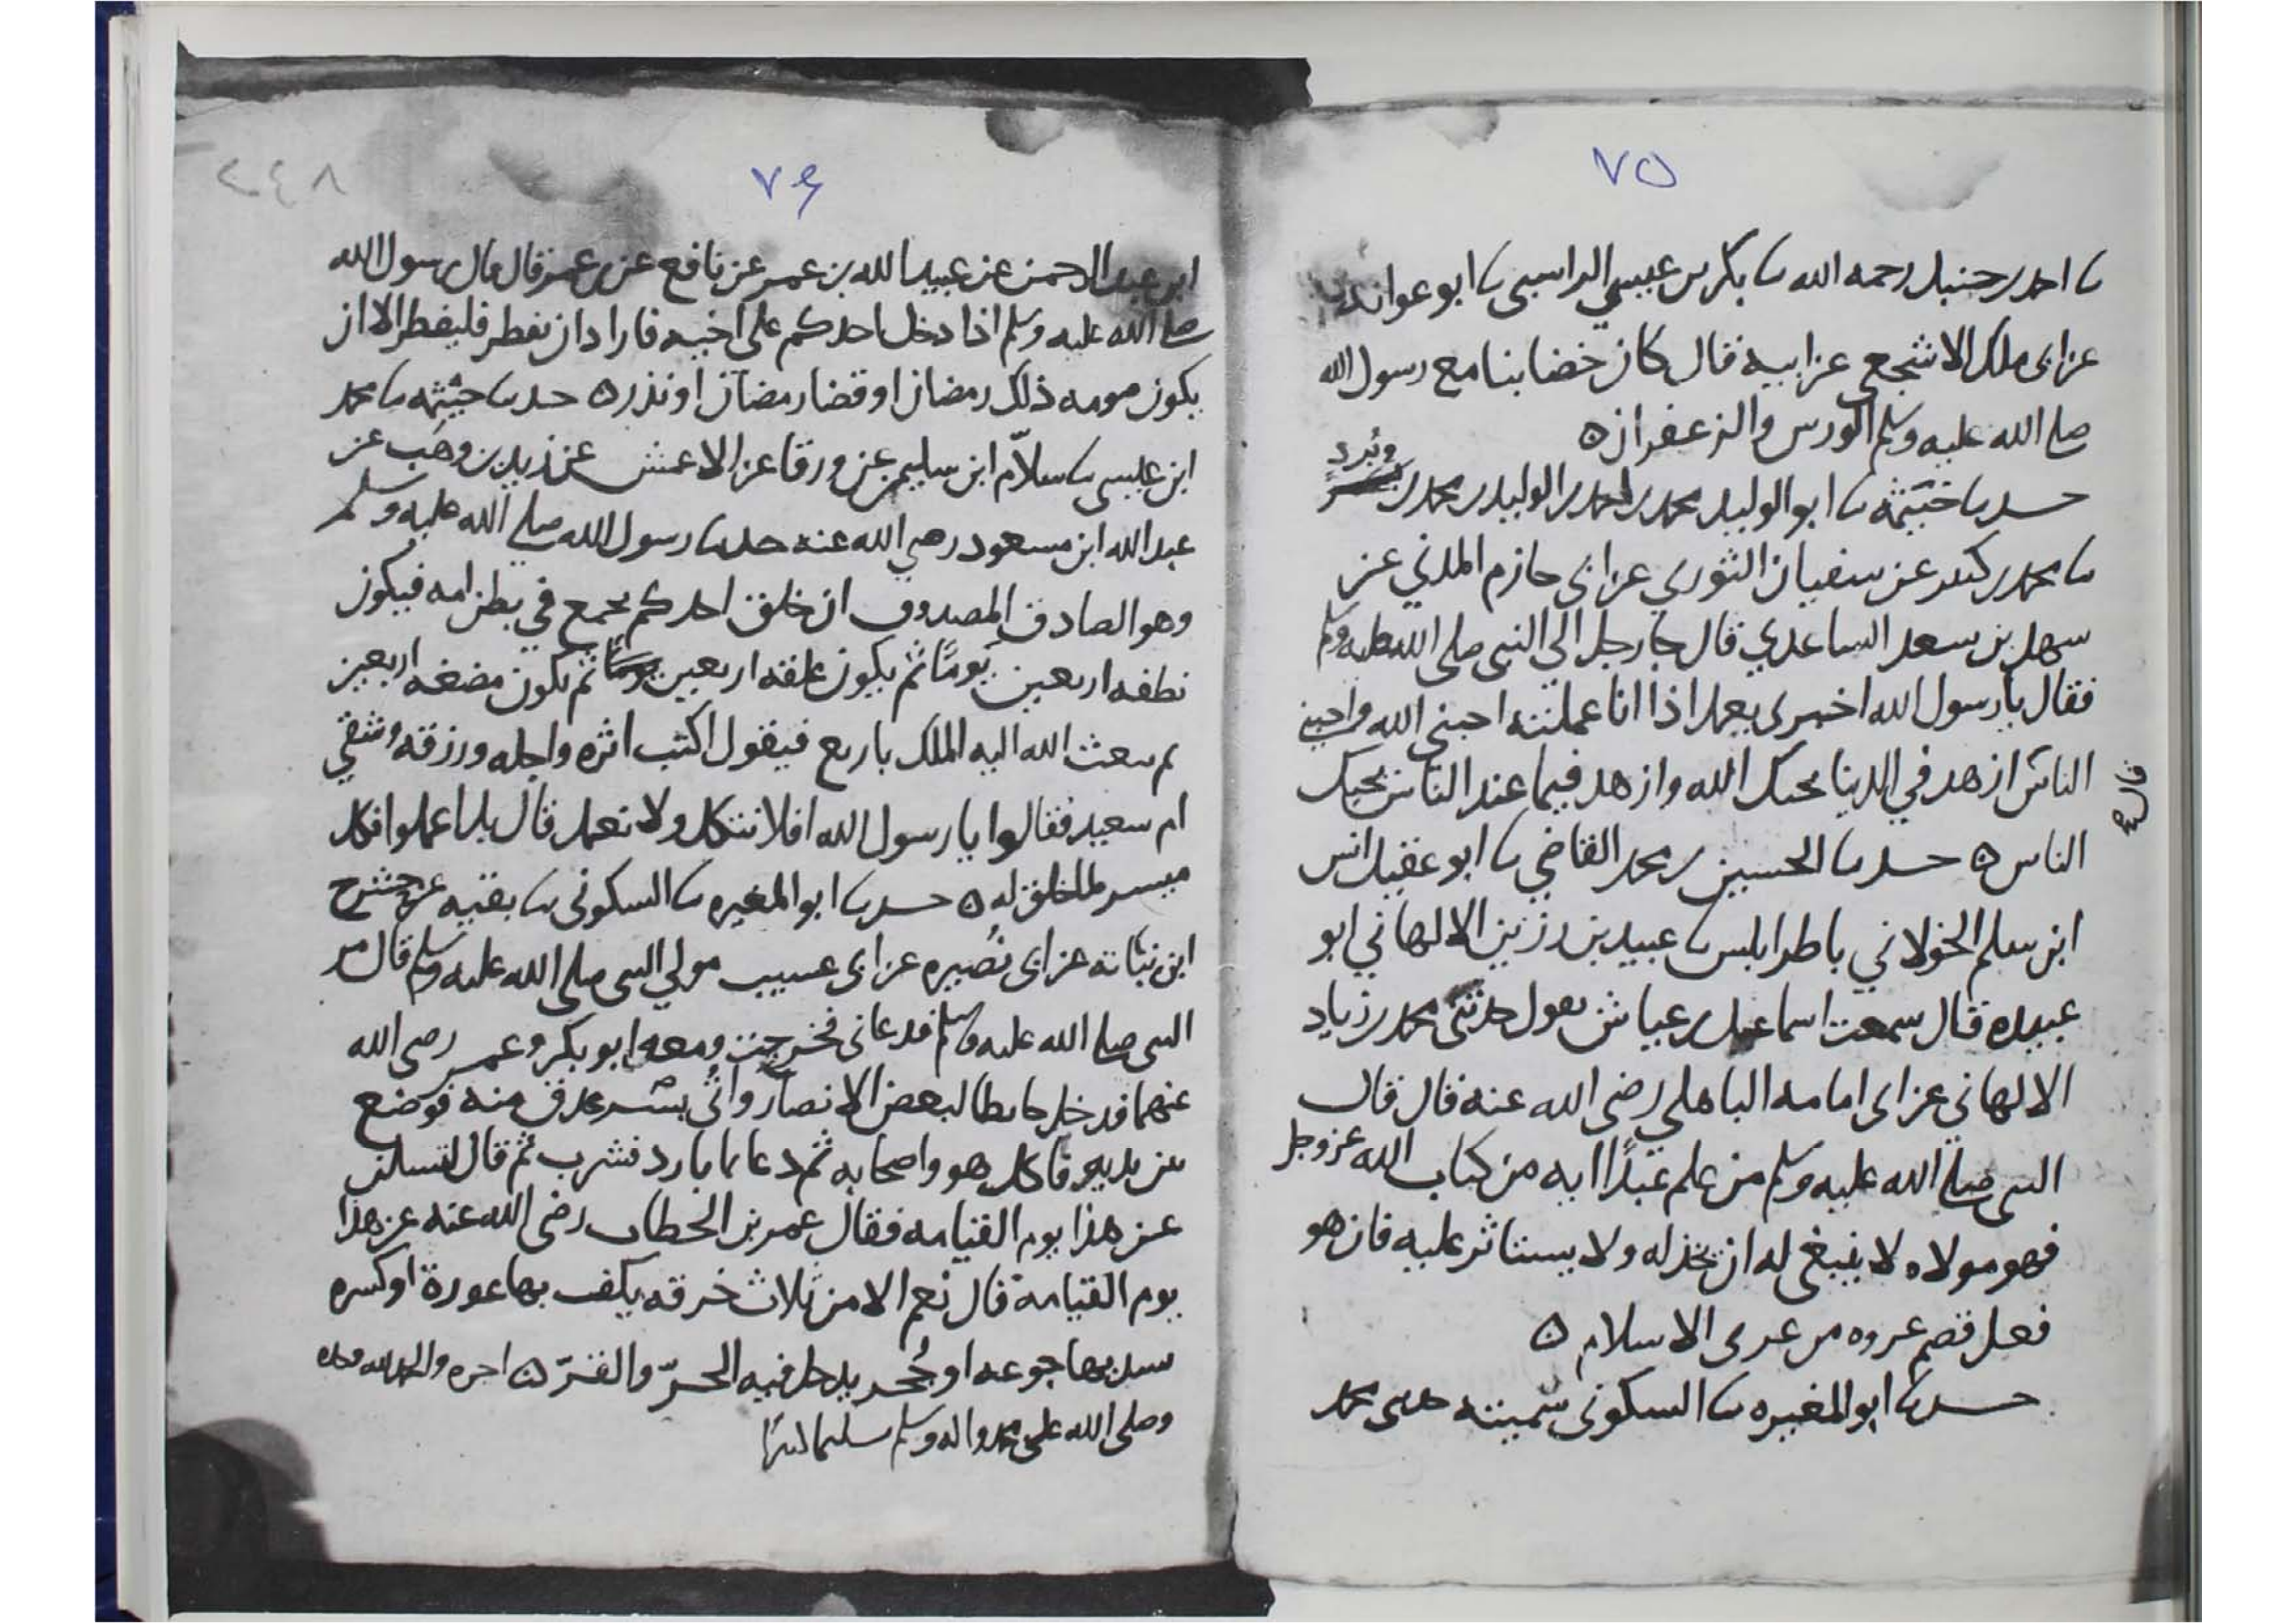 ٧٥
نا احمد بن حنبل رحمه الله نا بكر بن عيسى الراسبي نا ابو عوانه
عن ابي ملك الاشجعي عن ابيه قال كان خضابنا مع رسول الله
صلى الله عليه وسلم الورس والزعفران ه
حدثنا خيثمة نا ابو الوليد محمد بن احمد بن الوليد بن محمد بن برد
نا محمد بن كثير عن سفيان الثوري عن ابي حازم المدني عن
سهل بن سعد الساعدي قال جا رجل الي النبي صلى الله عليه وسلم
فقال يا رسول الله اخبرني بعمل اذا انا عملته احبني الله واحبني
الناس ازهد في الدنيا يحبك الله وازهد فيما عند الناس يحبك
قال
الناس ه حدثنا الحسين بن محمد القاضي نا ابو عقيل انس
ابن سلم الخولاني باطرابلس نا عبيد بن رزين الالهاني ابو
عبيده قال سمعت اسماعيل بن عياش يقول حدثني محمد بن زياد
الالهاني عن ابي امامه الباهلي رضى الله عنه قال قال
النبي صلى الله عليه وسلم من علم عبدًا ايه من كتاب الله عز وجل
فهو مولاه لا ينبغي له ان يخذله ولا يستاثر عليه فان هو
فعل قصم عروه من عرى الاسلام ه
حدثنا ابو المغيره نا السكوني سمينته حدثني محمد
٢٤٨
٧٦
ابن عبد الرحمن عن عبيد الله بن عمر عن نافع عن بن عمر قال قال رسول الله
صلى الله عليه وسلم اذا دخل احدكم على اخيه فاراد ان يفطر فليفطر الا ان
يكون صومه ذلك رمضان او قضا رمضان او نذر ه حدثنا خيثمه نا محمد
ابن عيسى نا سلاّم ابن سليم عن ورقا عن الاعمش عن زيد بن وهب عن
عبد الله ابن مسعود رضي الله عنه حدثنا رسول الله صلى الله عليه وسلم
وهو الصادق المصدوق ان خلق احدكم يجمع في بطن امه فيكون
نطفه اربعين يومًا ثم يكون علقه اربعين يومًا ثم يكون مضغه اربعين
ثم يبعث الله اليه الملك باربع فيقول اكتب اثره واجله ورزقه وشقي
ام سعيد فقالوا يا رسول الله افلا نتكل ولا نعمل قال بل اعملوا فكل
ميسر لما خلق له ه حدثنا ابو المغيره نا السكوني نا بقيه عن حشرج
ابن نباته عن ابي نُصيره عن ابي عسيب مولى النبي صلى الله عليه وسلم قال مر
النبي صلى الله عليه وسلم فدعاني فخرجت ومعه ابو بكر وعمر رضى الله
عنهما فدخل حايطا لبعض الانصار وأتي ببسر عذق منه فوضع
بين يديه فاكل هو واصحابه ثم دعا بما بارد فشرب ثم قال لتسلن
عن هذا يوم القيامه فقال عمر بن الخطاب رضى الله عنه عن هذا
يوم القيامة قال نعم الا من ثلاث خرقه يكف بها عورة او كسره
يسد بها جوعه او جُحر يدخل فيه الحرّ والقرّ ه اخره والحمد لله وحده
وصلى الله على محمد واله وسلم تسليما كثيرًا